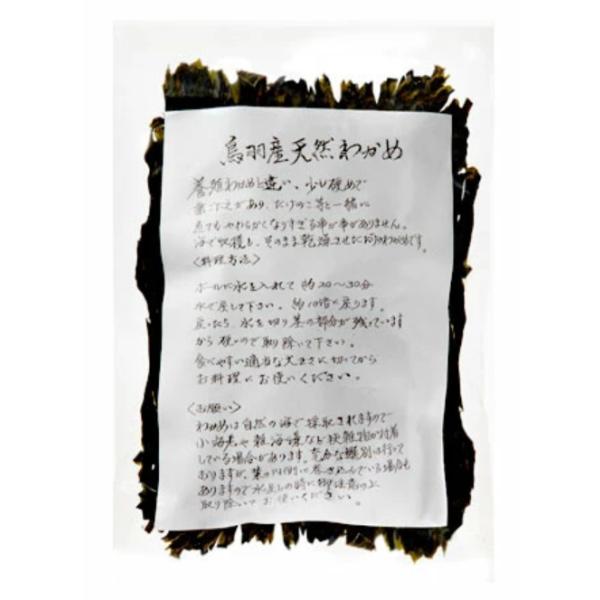 鳥羽産天然わかめ
養殖わかめと違い、少し硬めで
歯ごたえがあり、たけのこ等と一緒に
煮てもやわらかくなりすぎる事が事がありません。
海で収穫し、そのまま乾海させたわかめです。
〈料理方法〉
ボールに水を入れて約20〜30分
水で戻して下さい。約10倍に戻ります。
戻ったら、水を切り茎の部分が残っています
から硬いので取り除いて下さい。
食べやすい適当な大きさに切ってから
お料理にお使いください。
〈お願い〉
わかめは自然の海で採取されますので
小海老や雑海藻など狭雑物が付着
している場合があります。充分な選別は行って
おりますが、葉の内側に巻き込んでいる場合も
ありますので水戻しの時に御注意の上
取り除いてお使いください。